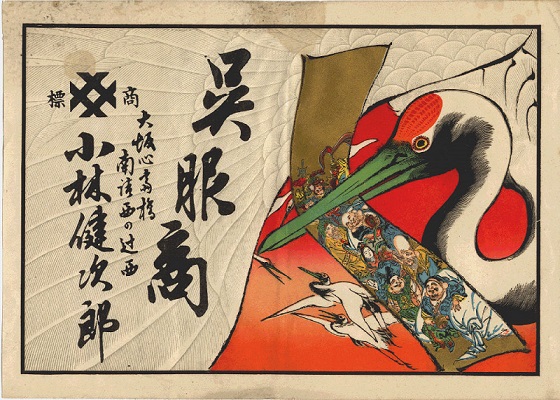 呉服商
大坂心斎橋
南詰西の辻西
商標
小林健次郎